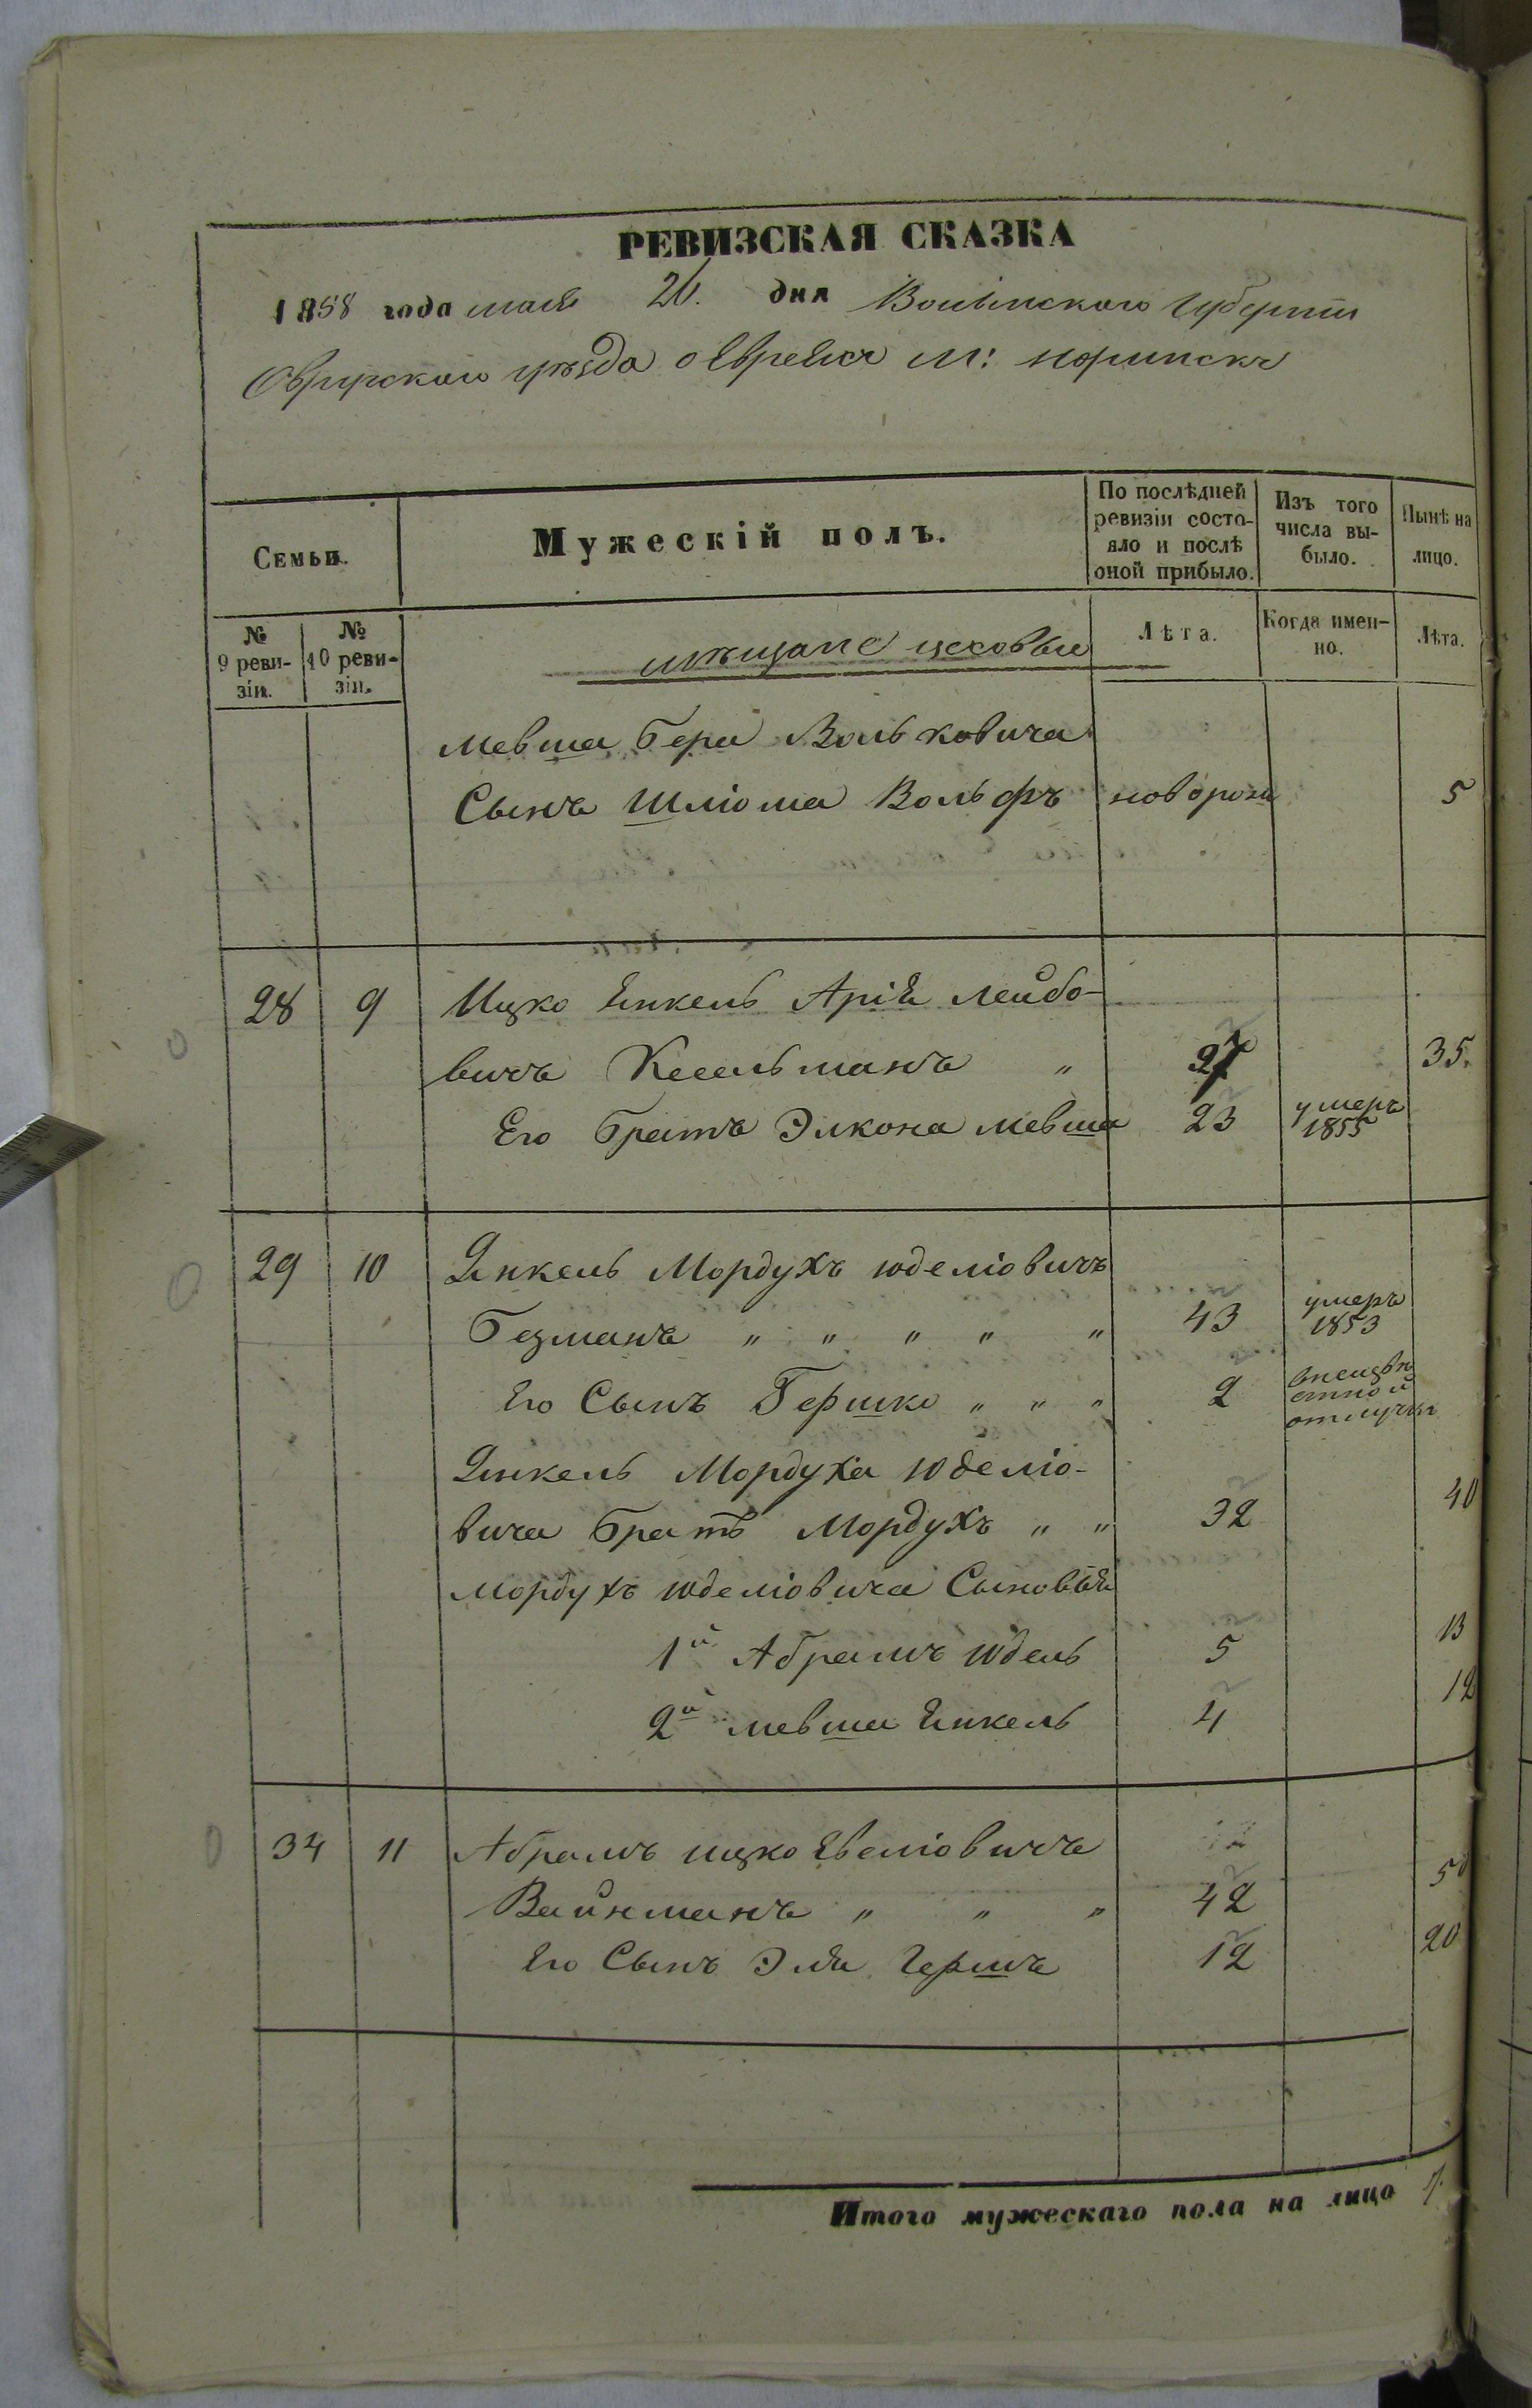 РЕВИЗСКАЯ СКАЗКА
1858 года мая 26. дня Волынской Губерніи
Овручскаго уѣзда о Евреяхъ М: Норинска
Семьи.
Мужескій полъ.
По послѣдней ревизіи состояло и послѣ оной прибыло.
Изъ того числа выбыло.
Нынѣ на лицо.
№ 9 ревизіи.
№ 10 ревизіи.
мѣщане цеховые
Лѣта.
Когда именно.
Лѣта.
Мевша Бера Вольковича
Сынъ Шліома Вольфъ новорож 5
28 9 Ицко Енкель Арія Лейбо-
вичъ Кесельманъ „ 27 35.
Его Братъ Элкона Мевша 23 умеръ 1855
29 10 Янкель Мордухъ Юделіовичъ
Безманъ „ „ „ „ „ 43 умеръ 1853
Его Сынъ Гершко „ „ „ 2 отлучки
Янкель Мордуха Юделіо-
вича Братъ Мордухъ „ „ 32 40
Мордухъ Юделіовича Сыновья
1й Абрамъ Юдель 5 13
2й Мевша Енкель 4 12
34 11 Абрамъ Ицко Евеліовичъ
Вайнманъ „ „ „ 42 50
Его Сынъ Эля Гершъ 12 20
Итого мужескаго пола на лицо